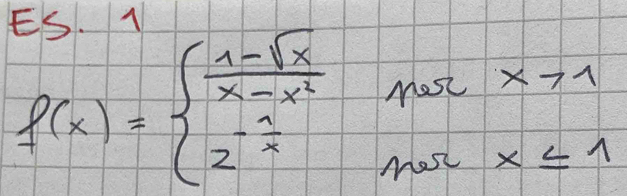 ES. 1
f(x) = { (1-√x)/(x-x²) per x>1
2^(-1/x) per x≤1